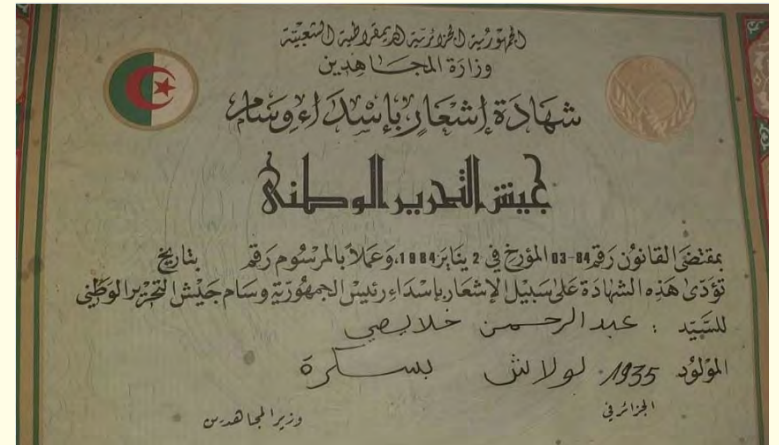 الجمهورية الجزائرية الديمقراطية الشعبية
وزارة المجاهدين
شهادة إشعار بإسداء وسام
جيش التحرير الوطني
بمقتضى القانون رقم 84-03 المؤرخ في 2 يناير 1984، وعملا بالمرسوم رقم بتاريخ
تؤدى هذه الشهادة على سبيل الإشعار بإسداء رئيس الجمهورية وسام جيش التحرير الوطني
للسيد : عبد الرحمن خلايصي
المولود 1935. لولاش بسكرة
الجزائر في
وزير المجاهدين